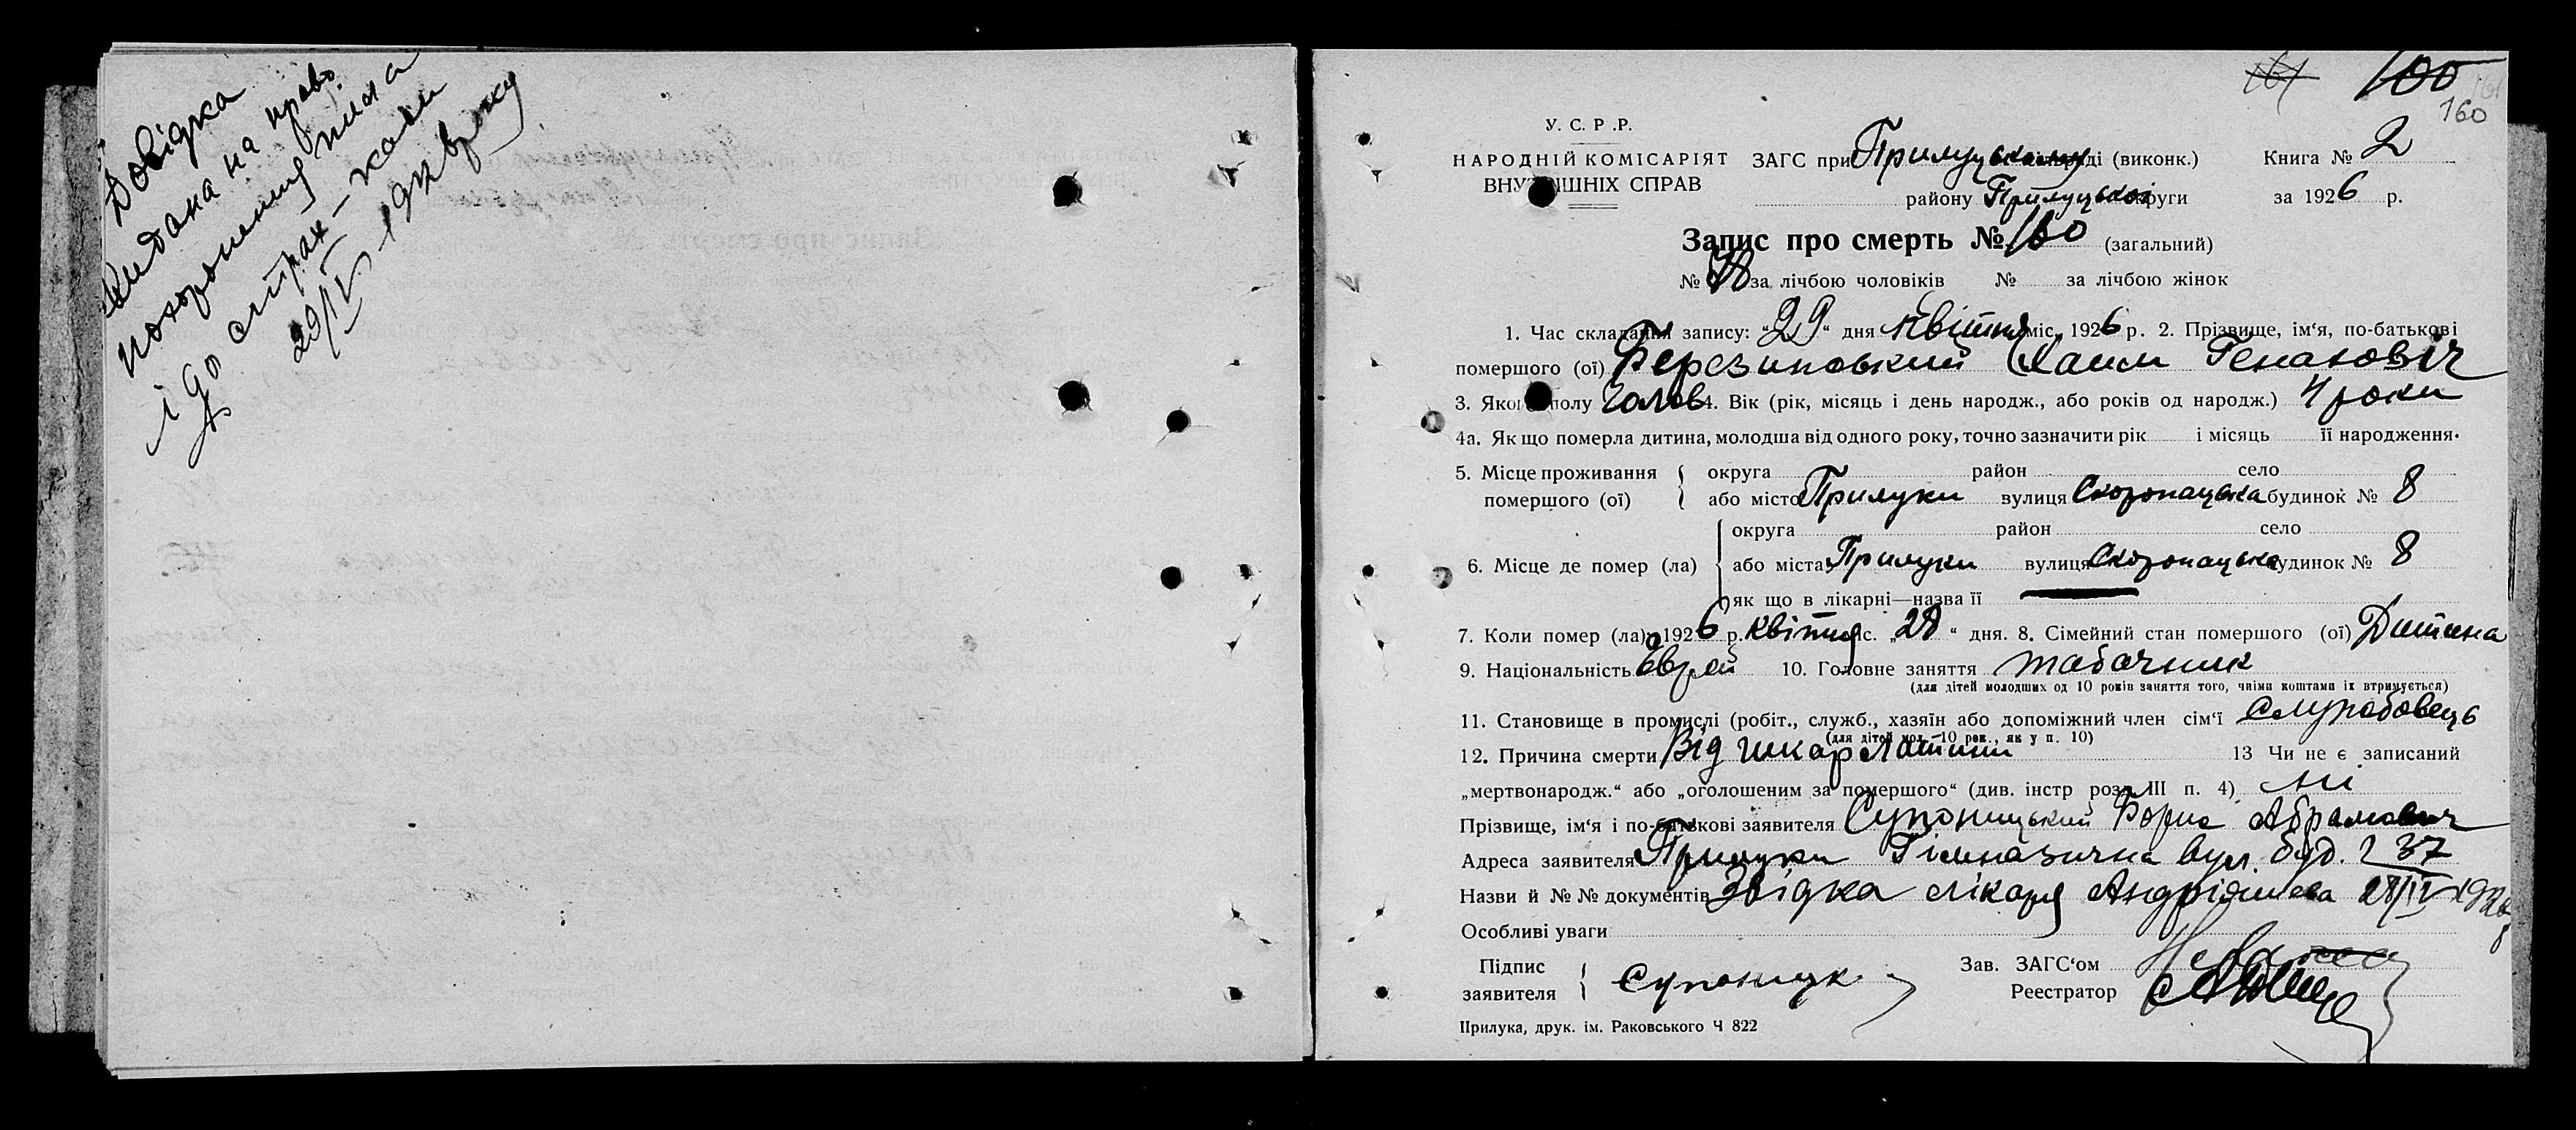 Довідка
видана на право
похоронення тіла
і до страх-каси
29/IV-192 року
160
У. С. Р. Р.
НАРОДНІЙ КОМІСАРІЯТ
ВНУТРІШНІХ СПРАВ
ЗАГС при Прилуцькому міськраді (виконк.) Книга № 2
району Прилуцької округи за 1926 р.
Запис про смерть № 160 (загальний)
№ за лічбою чоловіків № за лічбою жінок
1. Час складання запису: „29“ дня квітня міс. 1926 р. 2. Прізвище, ім‘я, по-батькові
помершого (ої) Березиновський Хаим Генахович
3. Якого полу Чолов 4. Вік (рік, місяць і день народж., або років од народж.) 4 роки
4а. Як що померла дитина, молодша від одного року, точно зазначити рік і місяць її народження.
5. Місце проживання округа район село
помершого (ої) або місто Прилуки вулиця Скоропацька будинок № 8
округа район село
6. Місце де помер (ла) або міста Прилуки вулиця Скоропацька будинок № 8
як що в лікарні—назва її
7. Коли помер (ла) 1926 р. квітня міс. „28“ дня. 8. Сімейний стан помершого (ої) Дитина
9. Національність Єврей 10. Головне заняття табачник
(для дітей молодших од 10 років заняття того, чиїми коштами їх втримується)
11. Становище в промислі (робіт., служб., хазяїн або допоміжний член сім‘ї Службовець
(для дітей мол. 10 рок., як у п. 10)
12. Причина смерти Від шкарлатини 13 Чи не є записаний
„мертвонародж.“ або „оголошеним за помершого“ (див. інстр розд. III п. 4) ні
Прізвище, ім‘я і по-батькові заявителя Супоницький Борис Абрамович
Адреса заявителя Прилуки Гімназична вул. буд. 37
Назви й № № документів Звідка лікаря Андріяшева 28/IV 1926 р
Особливі уваги
Підпис
заявителя Супоницк
Зав. ЗАГС‘ом
Реестратор
Прилука, друк. ім. Раковського Ч 822